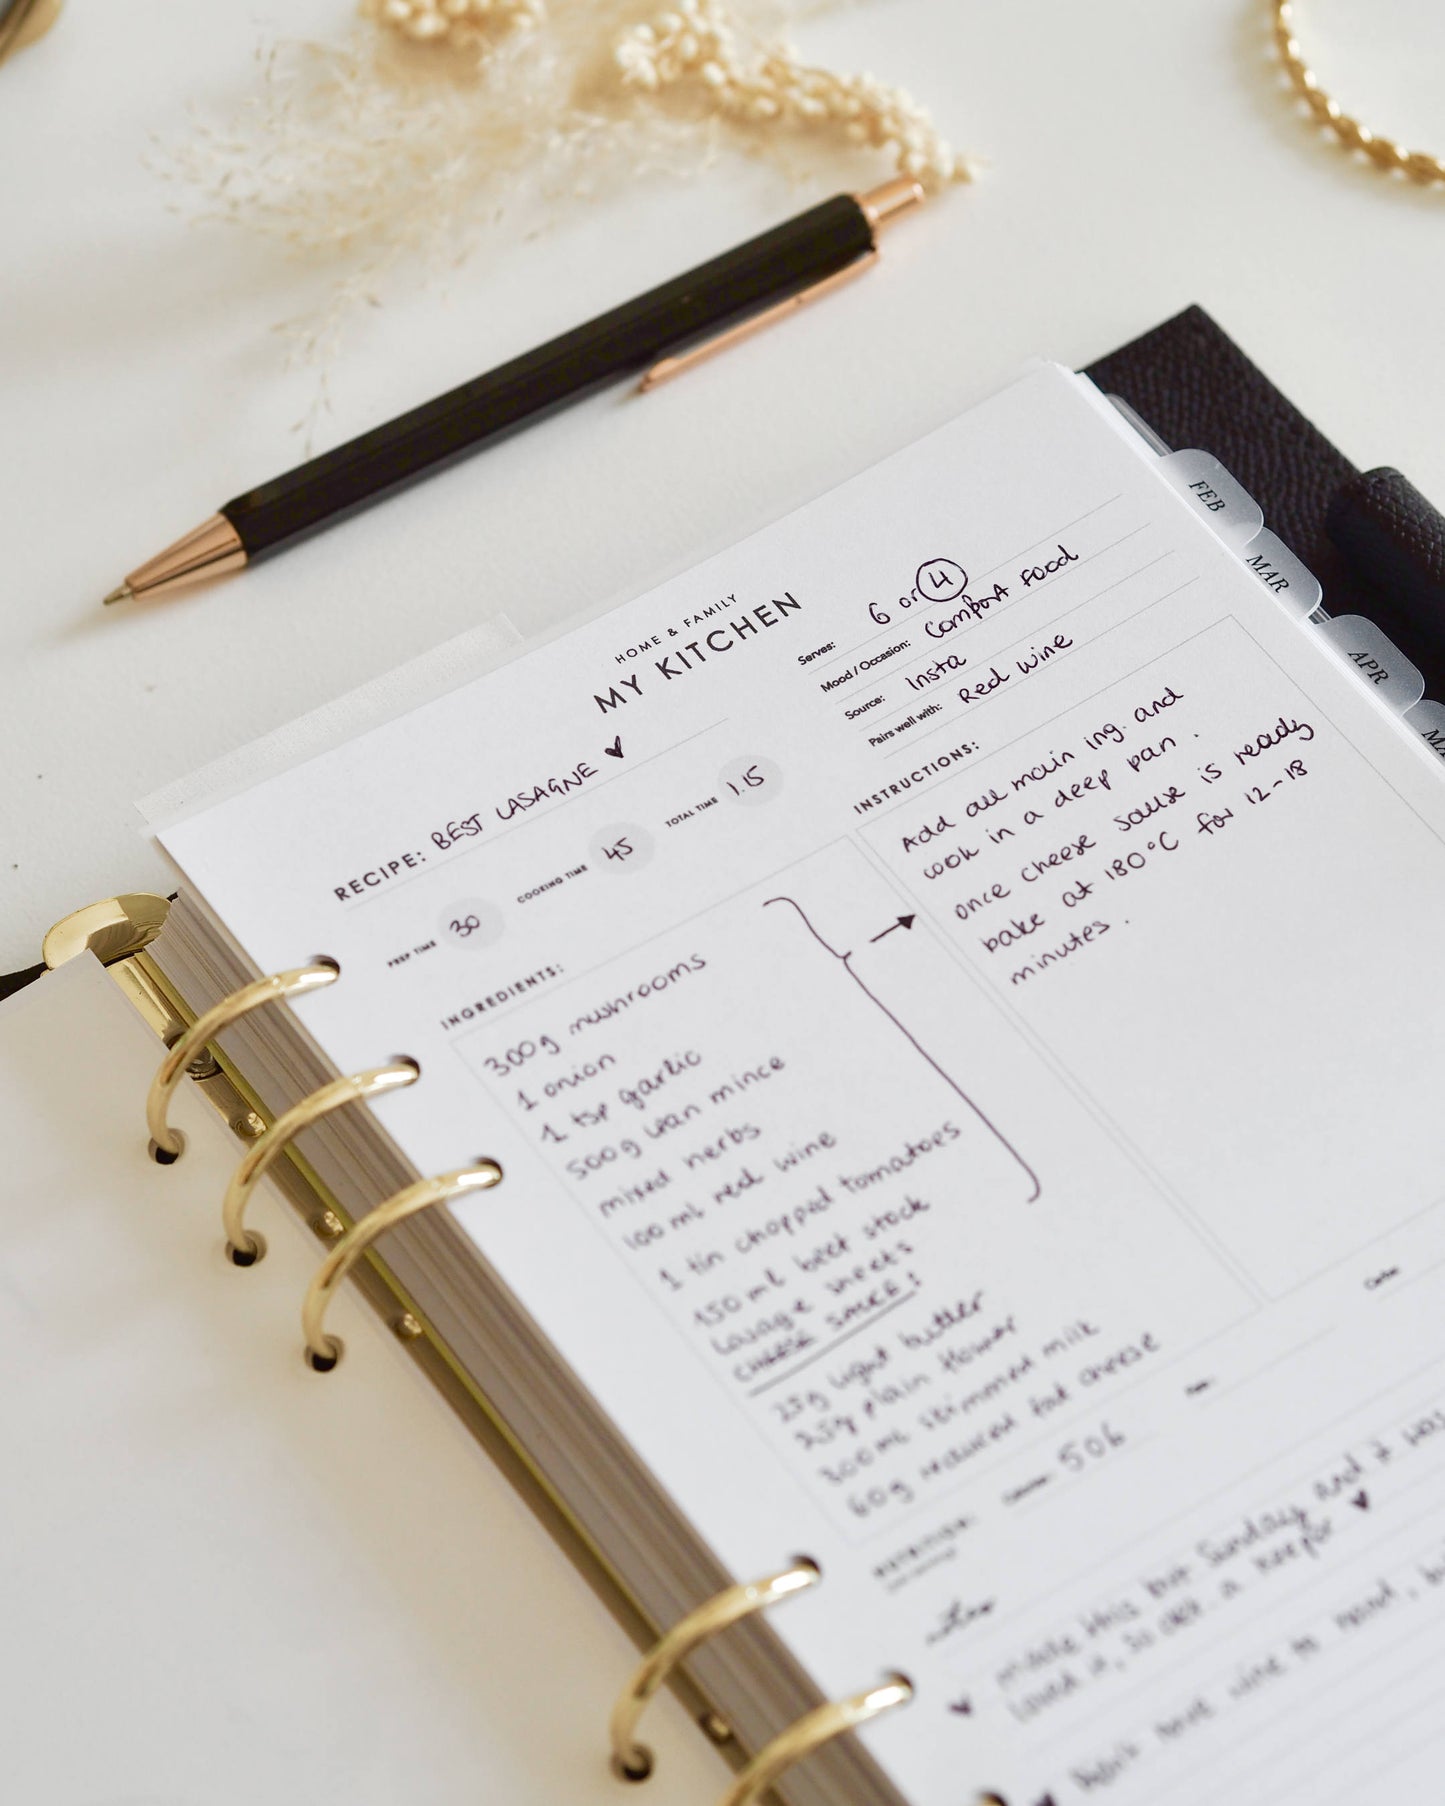 FEB
MAR
APR
HOME & FAMILY
MY KITCHEN
Serves: 6 or 4
Mood / Occasion: Comfort Food
Source: Insta
Pairs well with: Red Wine
RECIPE: BEST LASAGNE ♥
PREP TIME 30
COOKING TIME 45
TOTAL TIME 1.15
INGREDIENTS:
300g mushrooms
1 onion
1 tsp garlic
500g lean mince
mixed herbs
100 ml red wine
1 tin chopped tomatoes
150 ml beef stock
lasagne sheets
CHEESE SAUCE:
25g light butter
25g plain flower
300ml skimmed milk
60g reduced fat cheese
INSTRUCTIONS:
Add all main ing. and
cook in a deep pan.
once cheese sause is ready
bake at 180°C for 12-18
minutes.
NUTRITION:
Calories: 506
made this for Sunday and it was
loved it, so def a keeper ♥
have wine to hand,